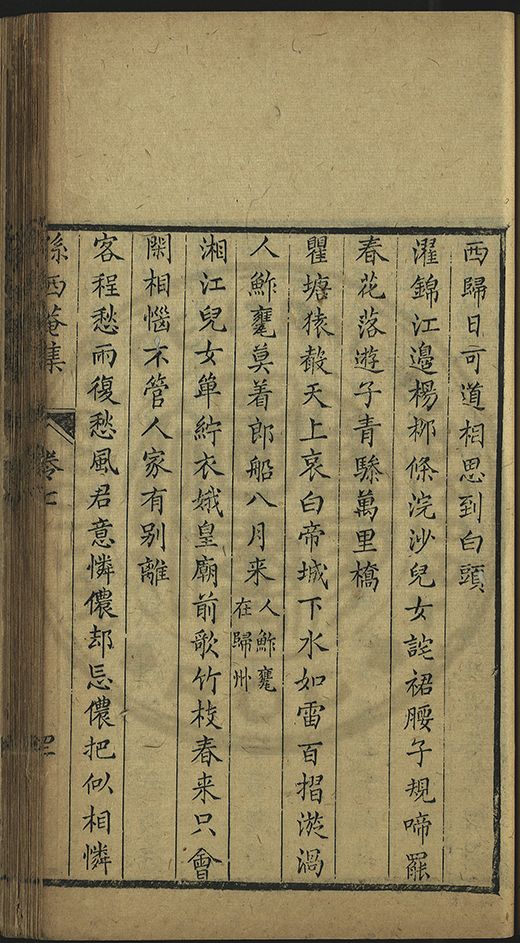 西歸日可道相思到白頭
濯錦江邊楊栁條浣沙兒女詫裙腰子規啼罷
春花落遊子青驂萬里橋
瞿塘猿㲉天上哀白帝城下水如雷百摺漩渦
人鮓甕莫着郎船八月来人鮓甕
在歸州
湘江兒女單紵衣娥皇廟前歌竹枝春来只會
閑相惱不管人家有别離
客程愁雨復愁風君意憐儂却忘儂把似相憐
孫西菴集
卷七
四